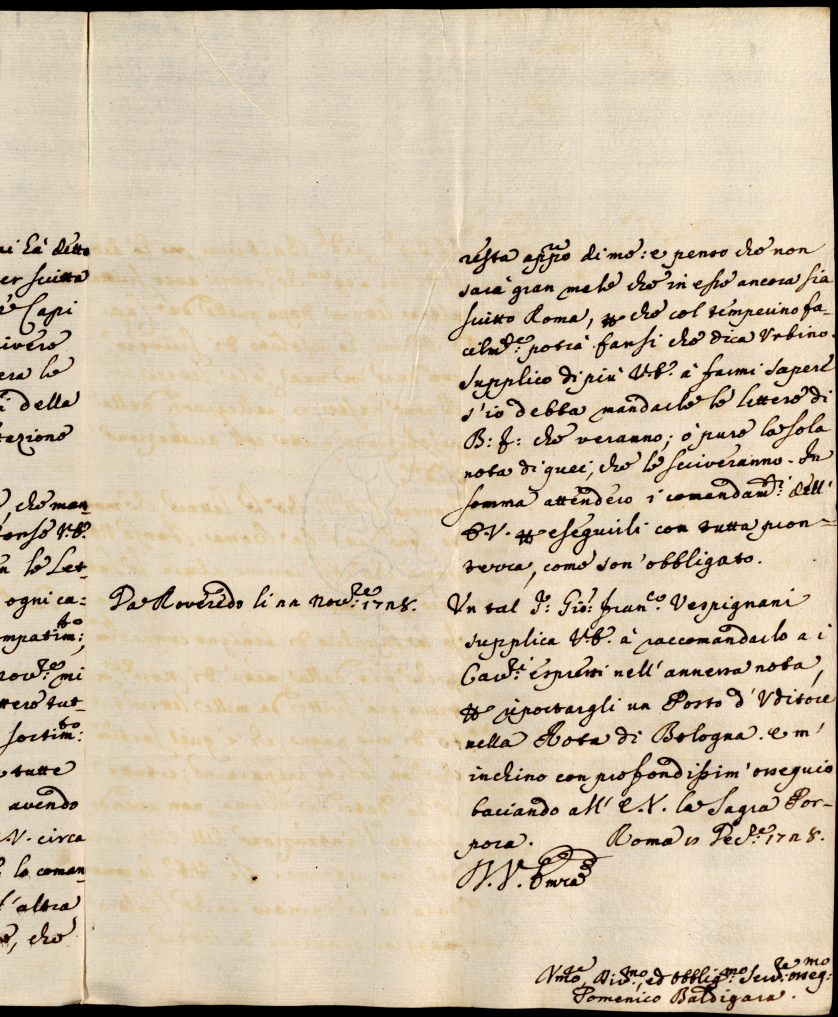 ni hà detto
er scitta
è Capi
ivere
era le
i della
tazione
, che man
forse V.E.
n le Let
ogni ca:
mpatim:to;
nov:re mi
ttere tut
sortim:to
tutte
avendo
.V. circa
le coman
l'altra
, che
Da Roveredo li 22 Nov:re 1728.
resta app:o di me: e penso che non
sarà gran male che in esse ancora sia
scitto Roma, che col tempecino fa-
cilm:te potrà farsi che dica Urbino.
Supplico di più V.E. à farmi sapere
s'io debba mandarle le littere di
B: F: che veranno; ò pure la sola
nota di quei, che le sciveranno. In
somma attenderò i comandam:ti dell'
E.V. p eseguirli con tutta pron=
tezza, come son'obbligato.
Un tal S: Gio: Fran:co Vespignani
supplica V.E. à raccomandarlo a i
Cav:ri espressi nell'annessa nota,
p riportargli un Posto d'Uditore
nella Rota di Bologna. e m'
inchino con profondissim'ossequio
baciando all'E.V. la Sagra Por-
pora. Roma Dec:re 1728.
V.V. Em:za
Um:mo, Div:mo, ed Obblig:mo Serv:re osseq:mo
Domenico Baldigara.